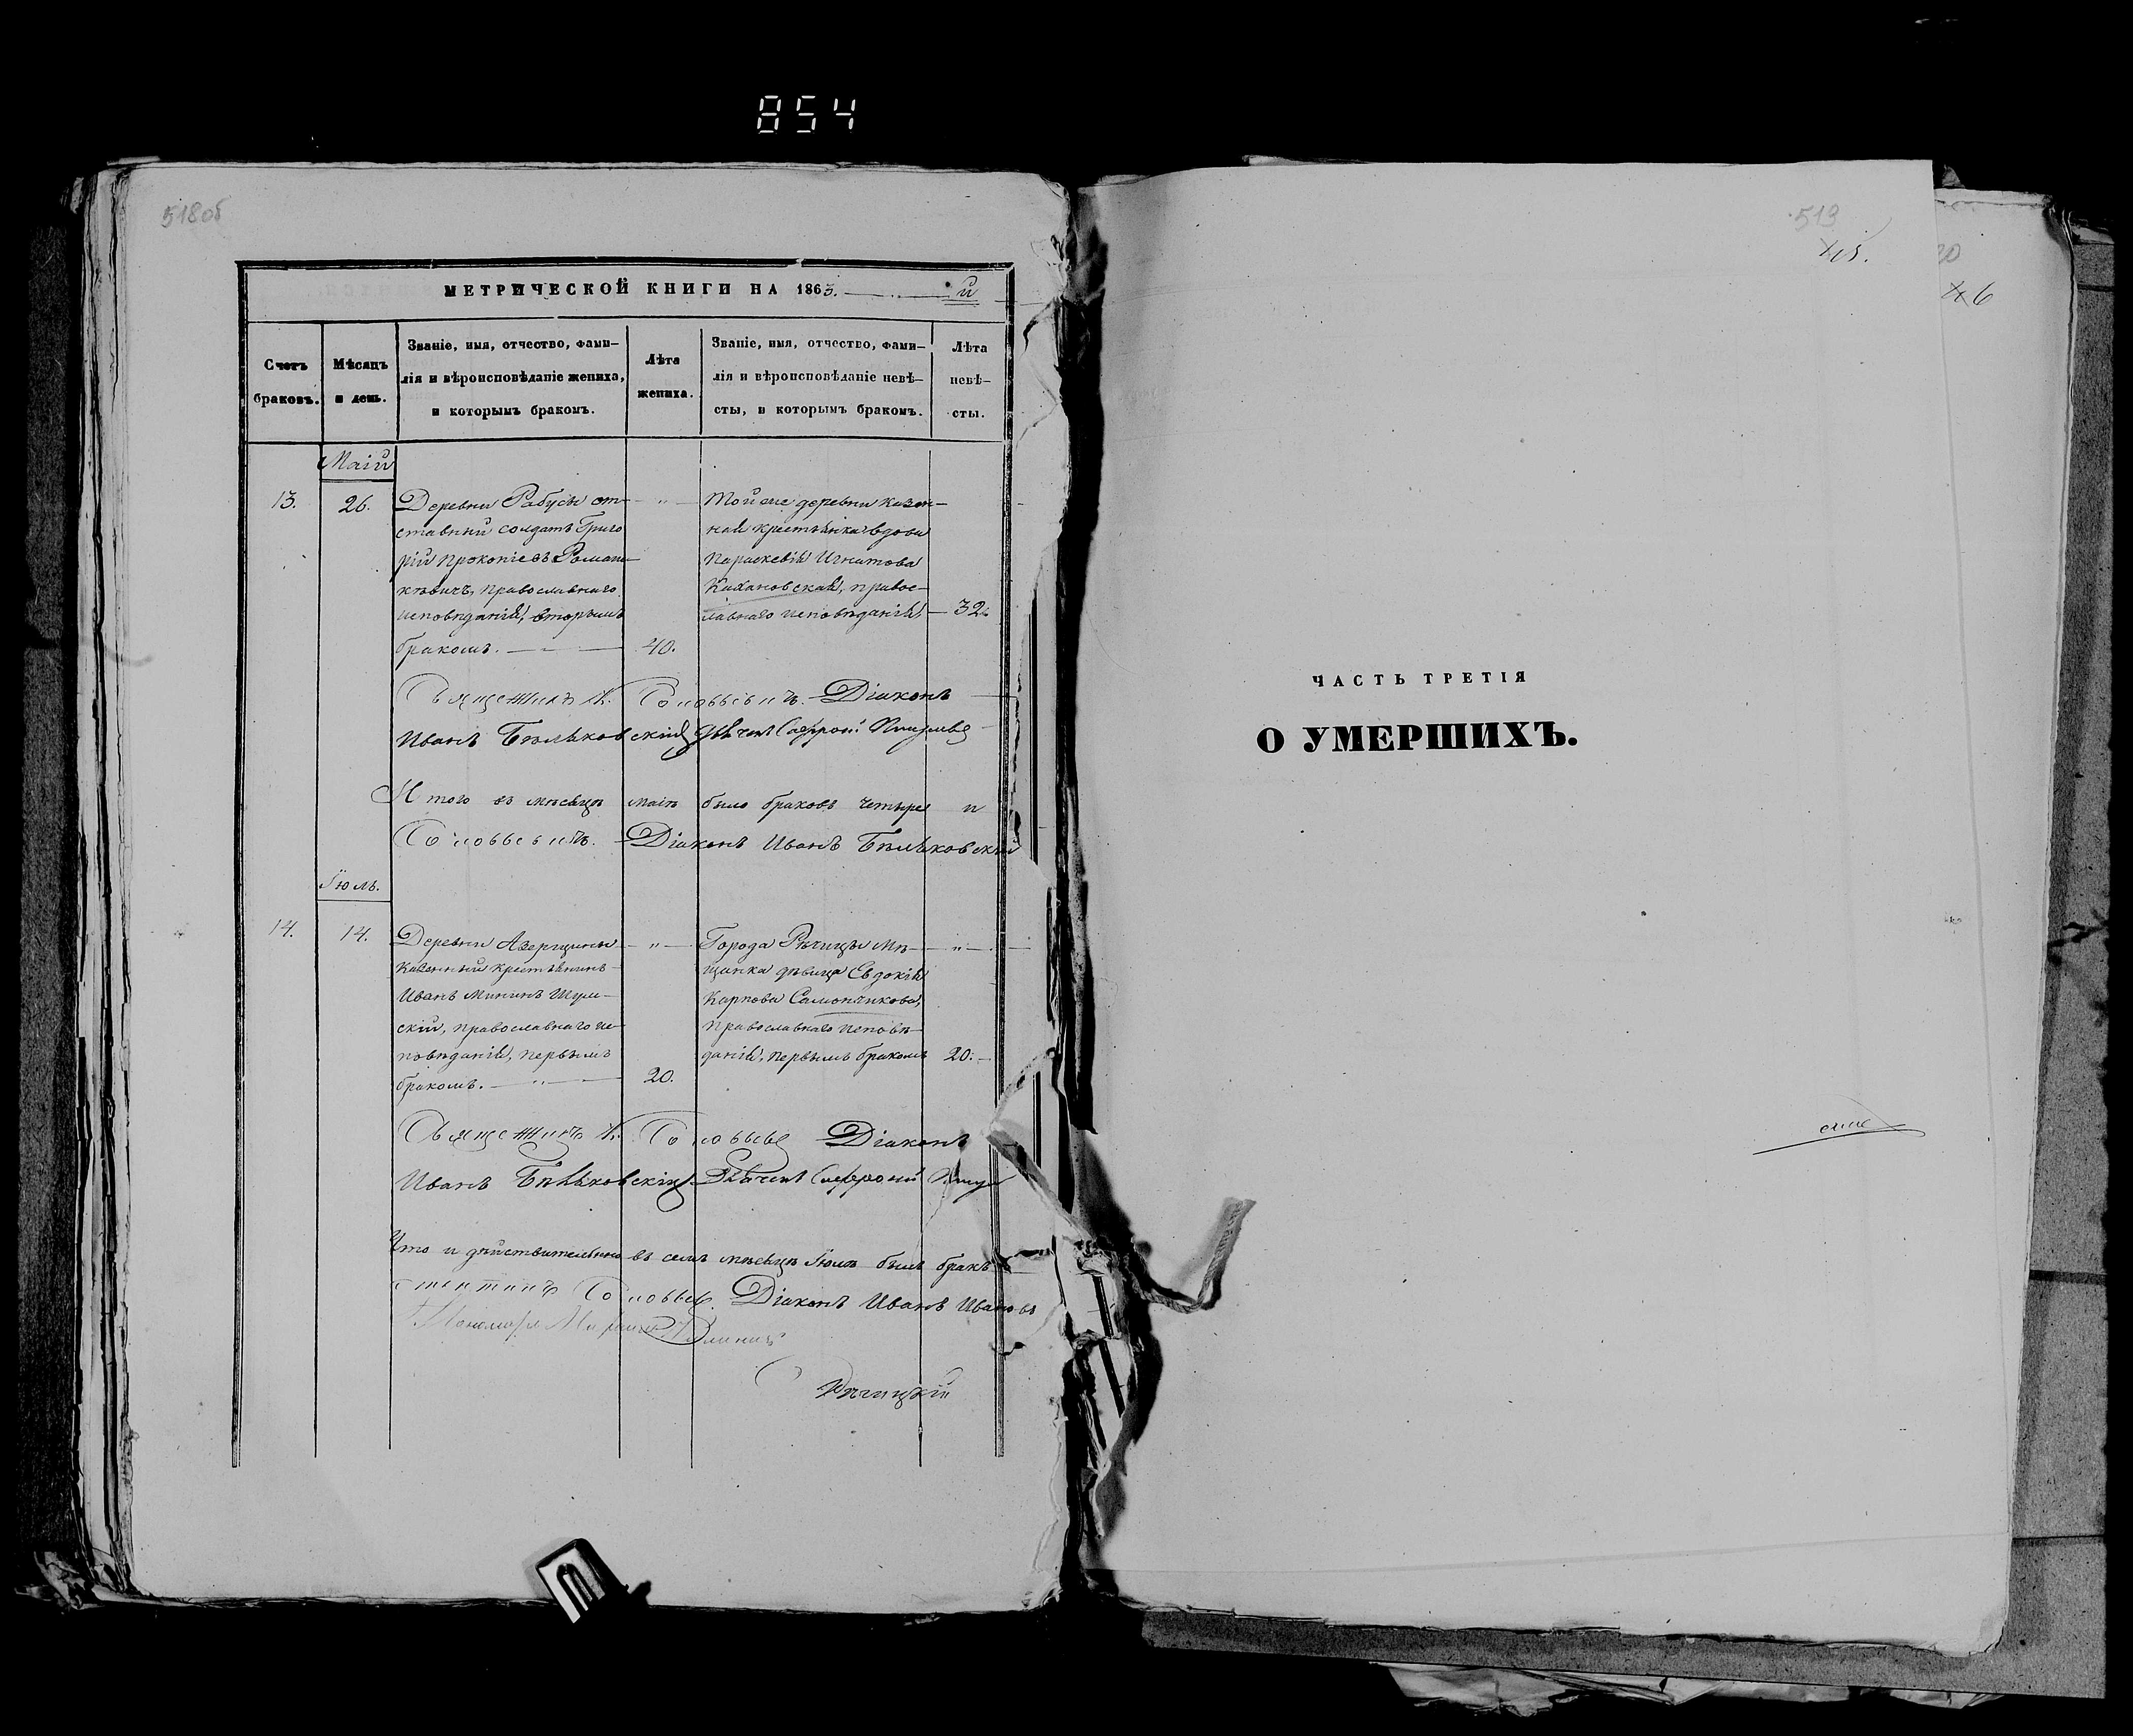 854
518об
МЕТРИЧЕСКОЙ КНИГИ НА 1863.
Счетъ браковъ.
Мѣсяцъ и день.
Званіе, имя, отчество, фами-
лія и вѣроисповѣданіе жениха,
и которымъ бракомъ.
Лѣта жениха.
Званіе, имя, отчество, фами-
лія и вѣроисповѣданіе невѣ-
сты, и которымъ бракомъ.
Лѣта невѣ-
сты.
Маій
13.
26.
Деревни Рабусы от-
ставный солдатъ Григо
рій Прокопіевъ Роман-
кевичъ, православнаго
исповѣданія, вторымъ
бракомъ.
40.
Той же деревни казен-
ная крестьянка вдова
Параскевія Игнатова
Кахановская, правос-
лавнаго исповѣданія,
32.
Священникъ Соловьевичъ. Діаконъ
Иванъ Бѣльковскій Дьячекъ Софроній
Итого въ мѣсяцѣ маіѣ было браковъ четыре и
Соловьевичъ. Діаконъ Иванъ Бѣльковскій
Іюль.
14.
14.
Деревни Азерщины
казенный крестьянинъ
Иванъ Мининъ Шум-
скій, православнаго ис-
повѣданія, первымъ
бракомъ.
20.
Города Рѣчицы мѣ-
щанка дѣвица Евдокія
Карпова Самончикова,
православнаго исповѣ-
данія, первымъ бракомъ
20.
Священникъ Соловьев Діаконъ
Иванъ Бѣльковскій Дьячекъ Софроній
Что и дѣйствительно въ семъ мѣсяцѣ Іюлѣ былъ бракъ
Соловьев. Діаконъ Иванъ Иванов
Пономарь
Рѣчицкій
519
ЧАСТЬ ТРЕТІЯ
О УМЕРШИХЪ.